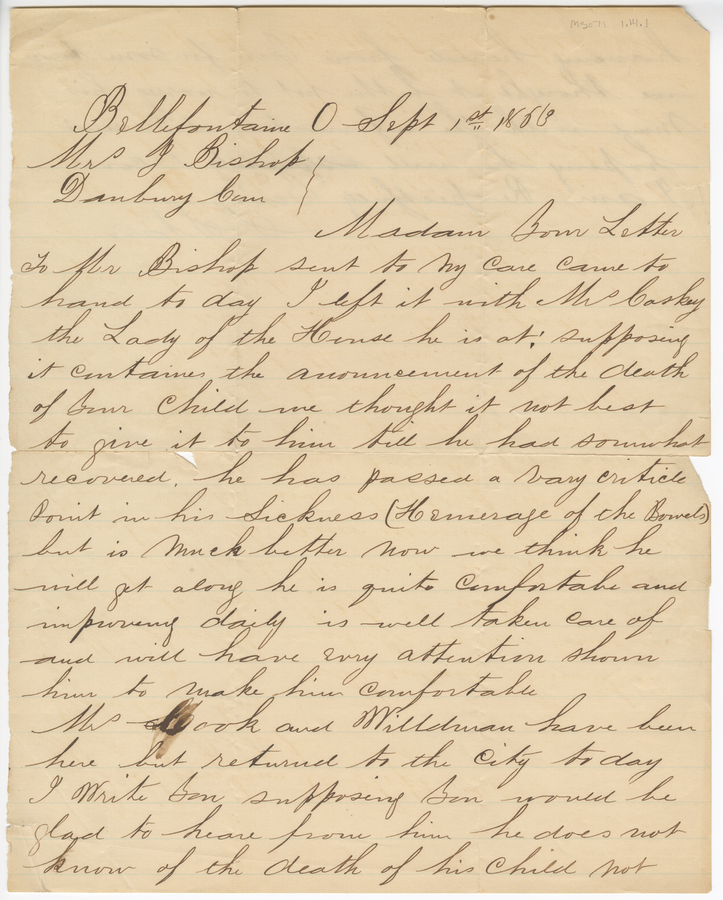 MS071 1.14.1
Bellefontaine O Sept 1st 1863
Mrs J Bishop
Danbury Conn
Madam Your Letter
to Mr Bishop sent to my care came to
hand to day I left it with Mrs Caskey
the Lady of the House he is at; supposing
it containes the anouncement of the death
of your child we thought it not best
to give it to him till he had somwhat
recovered, he has passed a vary criticle
point in his Sickness (Hemerage of the Bowels)
but is much better now we think he
will get along he is quite comfortabe and
improving daily is well taken care of
and will have evry attention shown
him to make him comfortable
Mrs Cook and Willdman have been
here but returned to the city to day
I Write you supposing you would be
glad to heare from him he does not
know of the death of his child not